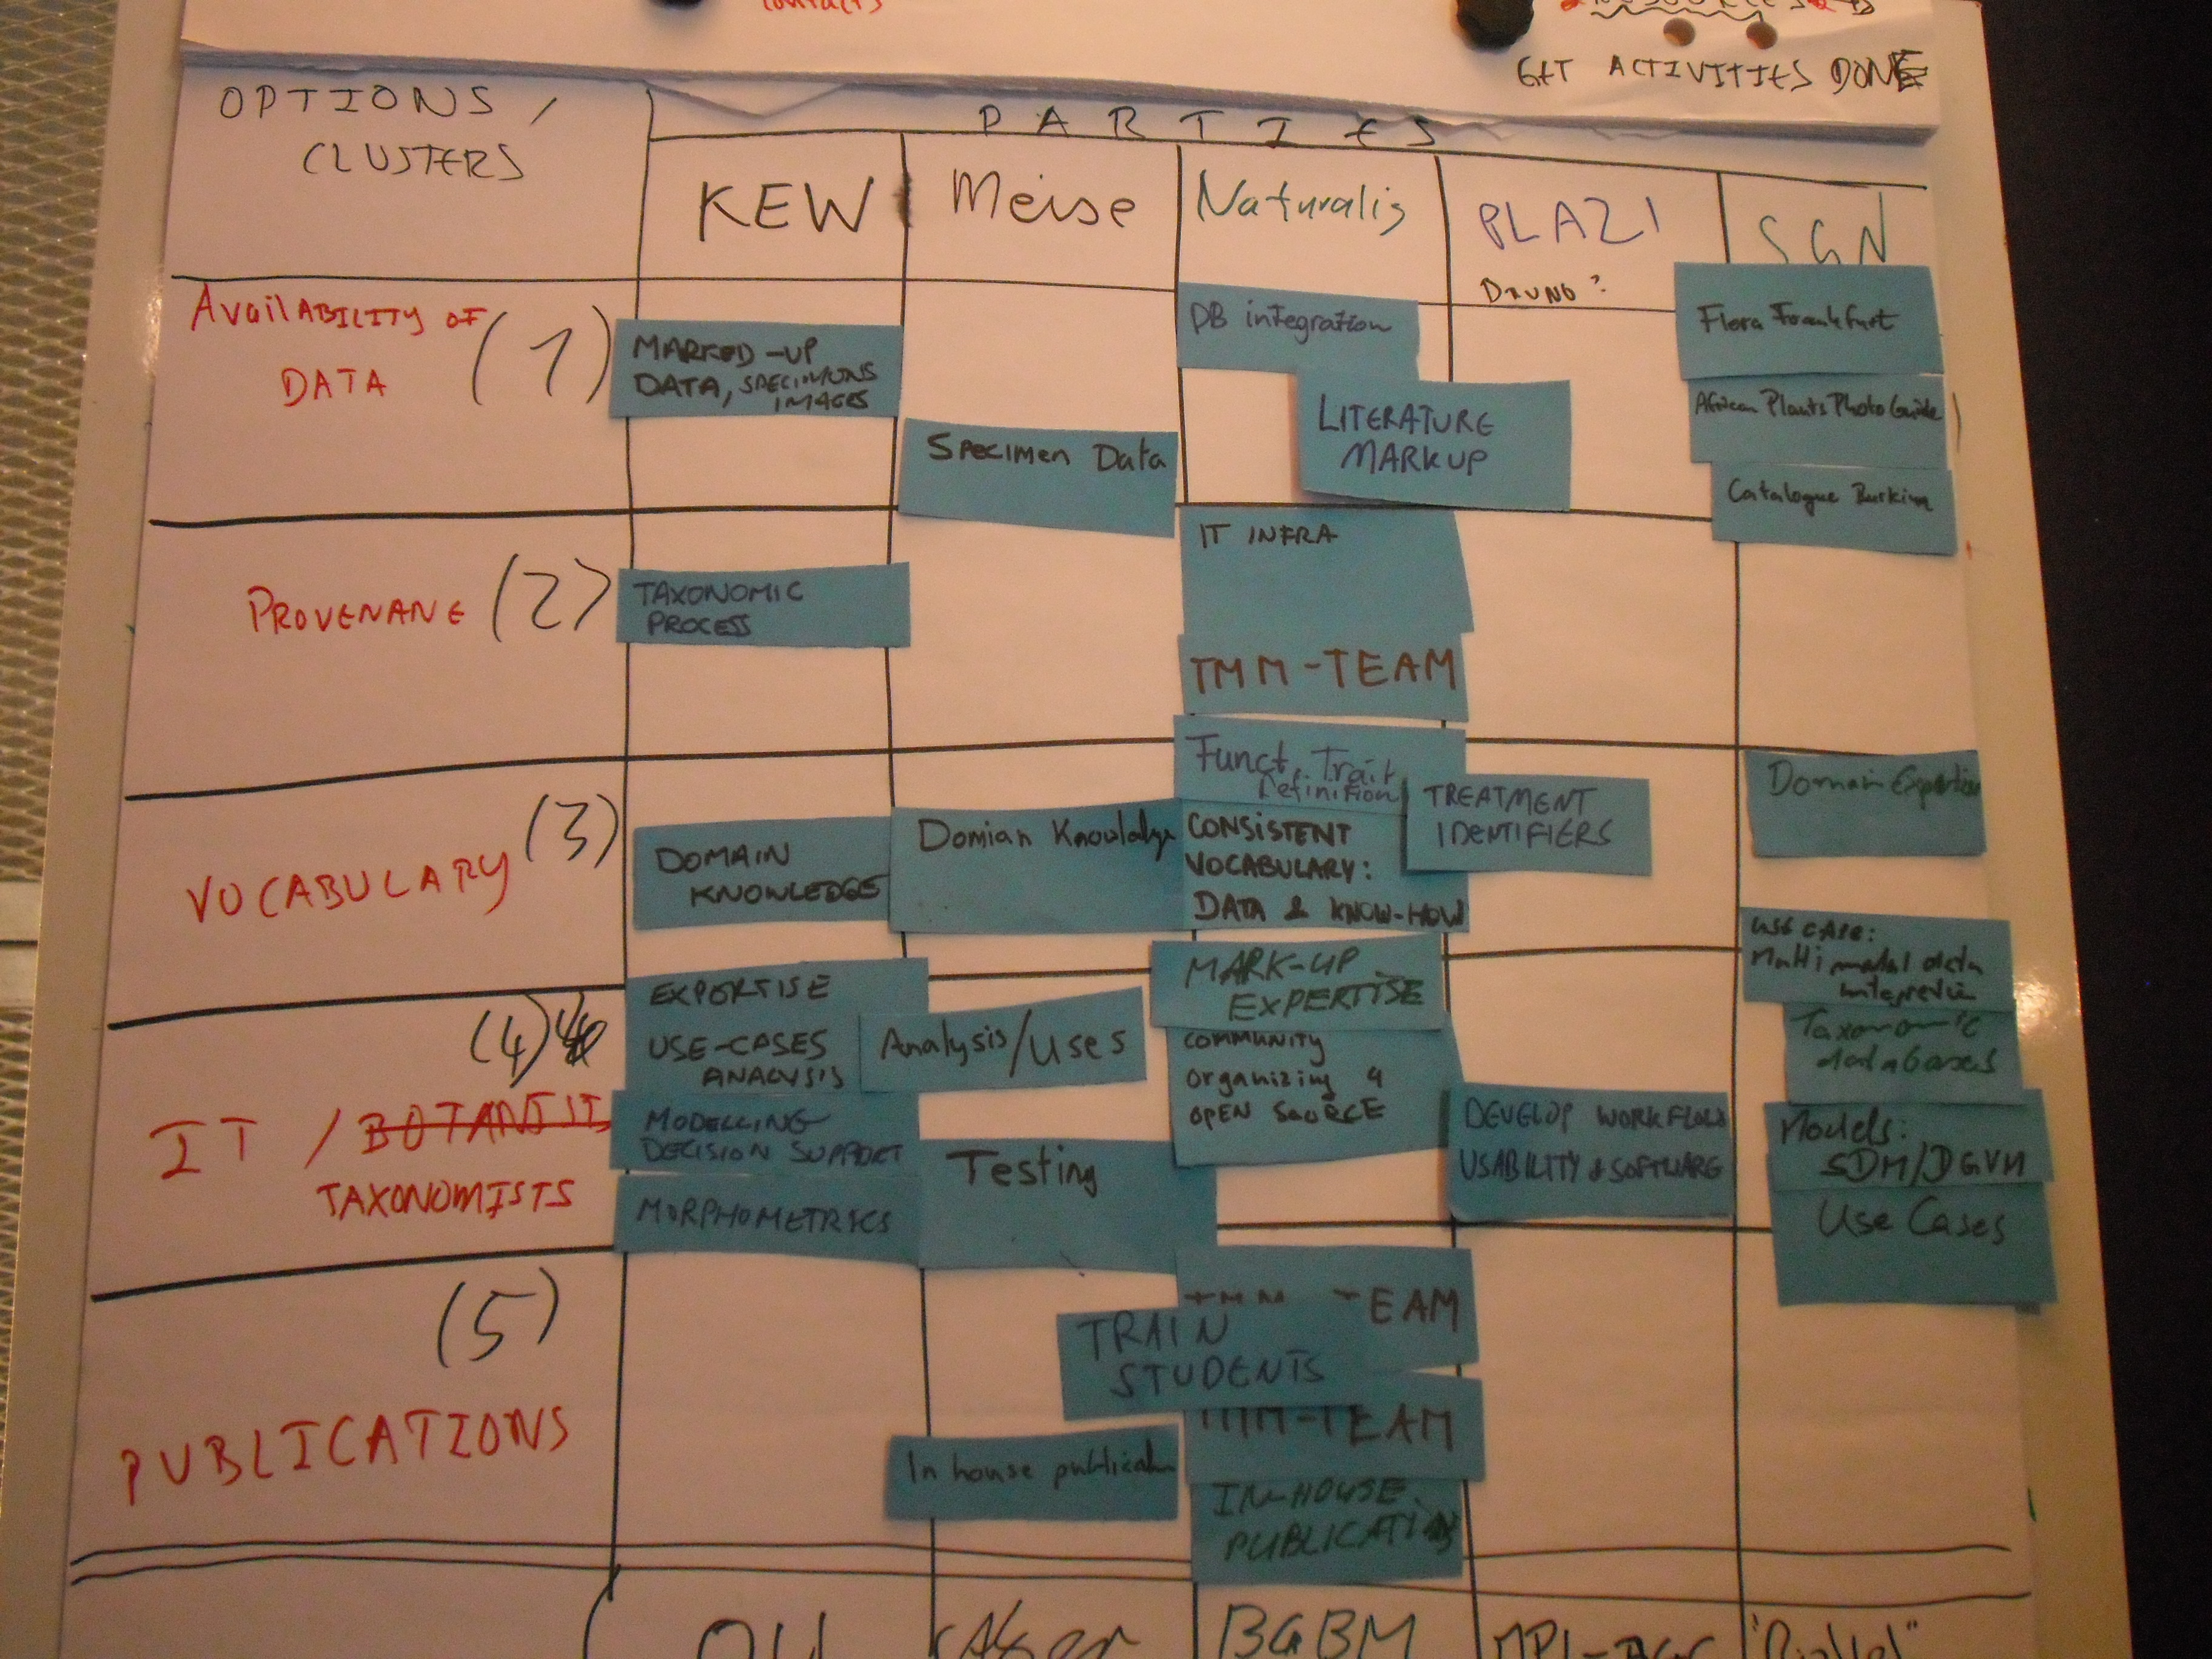 contacts
GET ACTIVITIES DONE
OPTIONS /
CLUSTERS
PARTIES
KEW
Meise
Naturalis
PLAZI
SGN
DRUNO?
AvailABILITY OF
DATA
(1)
MARKED-UP
DATA, SPECIMENS
IMAGES
Specimen Data
DB integration
LITERATURE
MARKUP
Flora Frankfurt
African Plants Photo Guide
Catalogue Burkina
PROVENANE
(2)
TAXONOMIC
PROCESS
IT INFRA
TMM-TEAM
VOCABULARY
(3)
DOMAIN
KNOWLEDGE
Domian Knowladge
Funct. Trait
Definition
CONSISTENT
VOCABULARY:
DATA & KNOW-HOW
TREATMENT
IDENTIFIERS
Domain Expertise
(4)
IT / BOTANIST
TAXONOMISTS
EXPERTISE
USE-CASES
ANALYSIS
MODELLING
DECISION SUPPORT
MORPHOMETRICS
Analysis/Uses
Testing
MARK-UP
EXPERTISE
COMMUNITY
Organizing &
OPEN SOURCE
DEVELOP WORKFLOW
USABILITY & SOFTWARE
USE CASE:
Multi modal data
Taxonomic
databases
Models:
SDM/DGVM
Use Cases
(5)
PUBLICATIONS
In house publication
TMM-TEAM
TRAIN
STUDENTS
TMM-TEAM
IN-HOUSE
PUBLICATION
BGBM